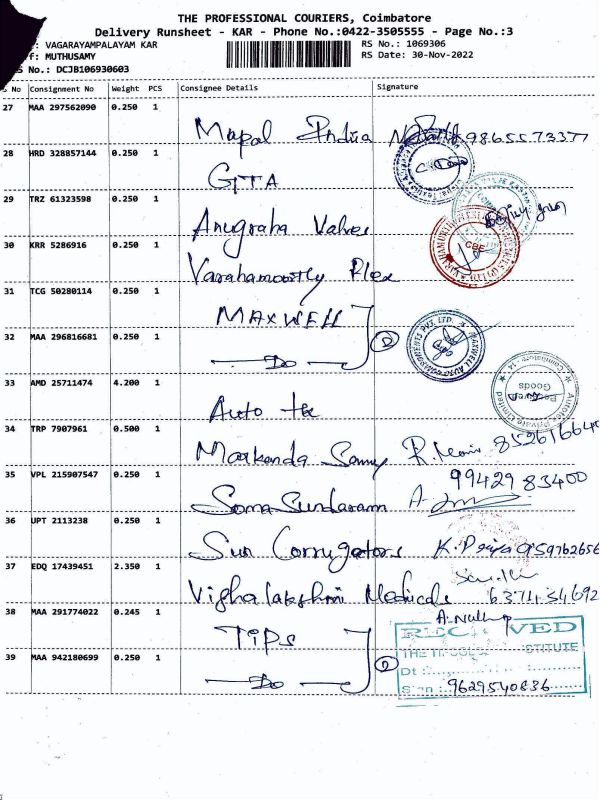 THE PROFESSIONAL COURIERS, Coimbatore
Delivery Runsheet - KAR - Phone No.:0422-3505555 - Page No.:3
: VAGARAYAMPALAYAM KAR RS No.: 1069306
f: MUTHUSAMY RS Date: 30-Nov-2022
S No.: DCJB106930603
S No Consignment No Weight PCS Consignee Details Signature
27 MAA 297562090 0.250 1
Mapal India 9865573377
28 HRD 328857144 0.250 1
29 TRZ 61323598 0.250 1
Anugraha Valves
30 KRR 5286916 0.250 1
Varahamoorthy Flex
CBE
31 TCG 50280114 0.250 1
MAXWELL
32 MAA 296816681 0.250 1
Do 2
MAXWELL AUTO COMPONENTS PVT. LTD.
33 AMD 25711474 4.200 1
Auto tek
Goods
34 TRP 7907961 0.500 1
Markanda Samy R. 852616640
35 VPL 215907547 0.250 1
Soma Sundaram A. 99429 83400
36 UPT 2113238 0.250 1
Sun Corrugators K. Priya 959762656
37 EDQ 17439451 2.350 1
Vighalakshmi Medicals 6371434692
38 MAA 291774022 0.245 1
TIPS
39 MAA 942180699 0.250 1
Do 2
RECEIVED
Dt :
Sign : 9629540836